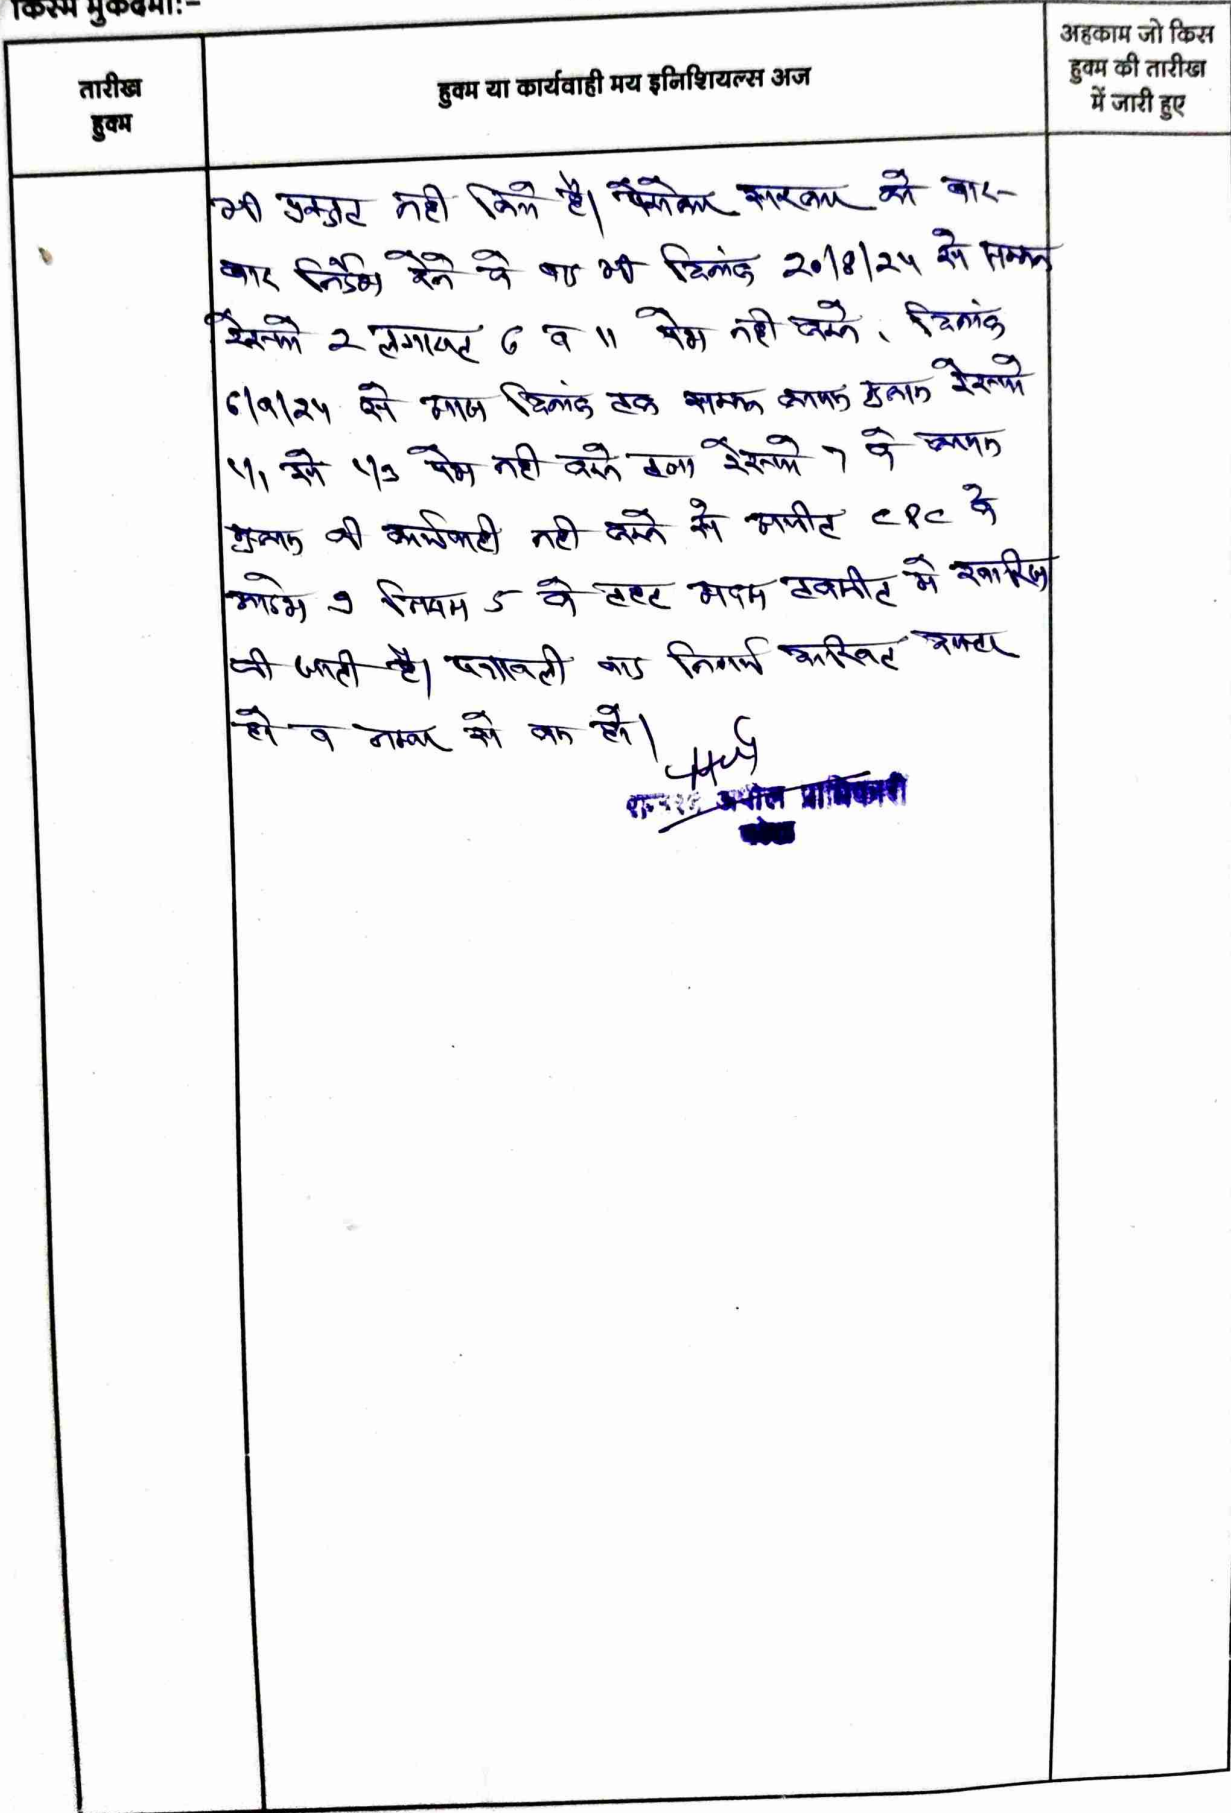 किस्म मुकदमा:-
तारीख
हुक्म
हुक्म या कार्यवाही मय इनिशियल्स अज
अहकाम जो किस
हुक्म की तारीख
में जारी हुए
भी प्रस्तुत नही किये है। को बार-
बार निर्देश देने के बाद भी दिनांक 20/8/24 से सम्मन
रेस्पो 2 लगायत 6 व 11 पेश नही करने, दिनांक
6/9/24 से आज दिनांक तक सम्मन कायम मुकाम रेस्पो
1/1 से 1/3 पेश नही करने तथा रेस्पो 7 के कायम
मुकाम की कार्यवाही नही करने से अपील CPC के
आदेश 9 नियम 5 के तहत अदम तकमील में खारिज
की जाती है। पत्रावली बाद निर्णय दफ्तर
हो व नम्बर से कम हो।
अपील प्राधिकारी